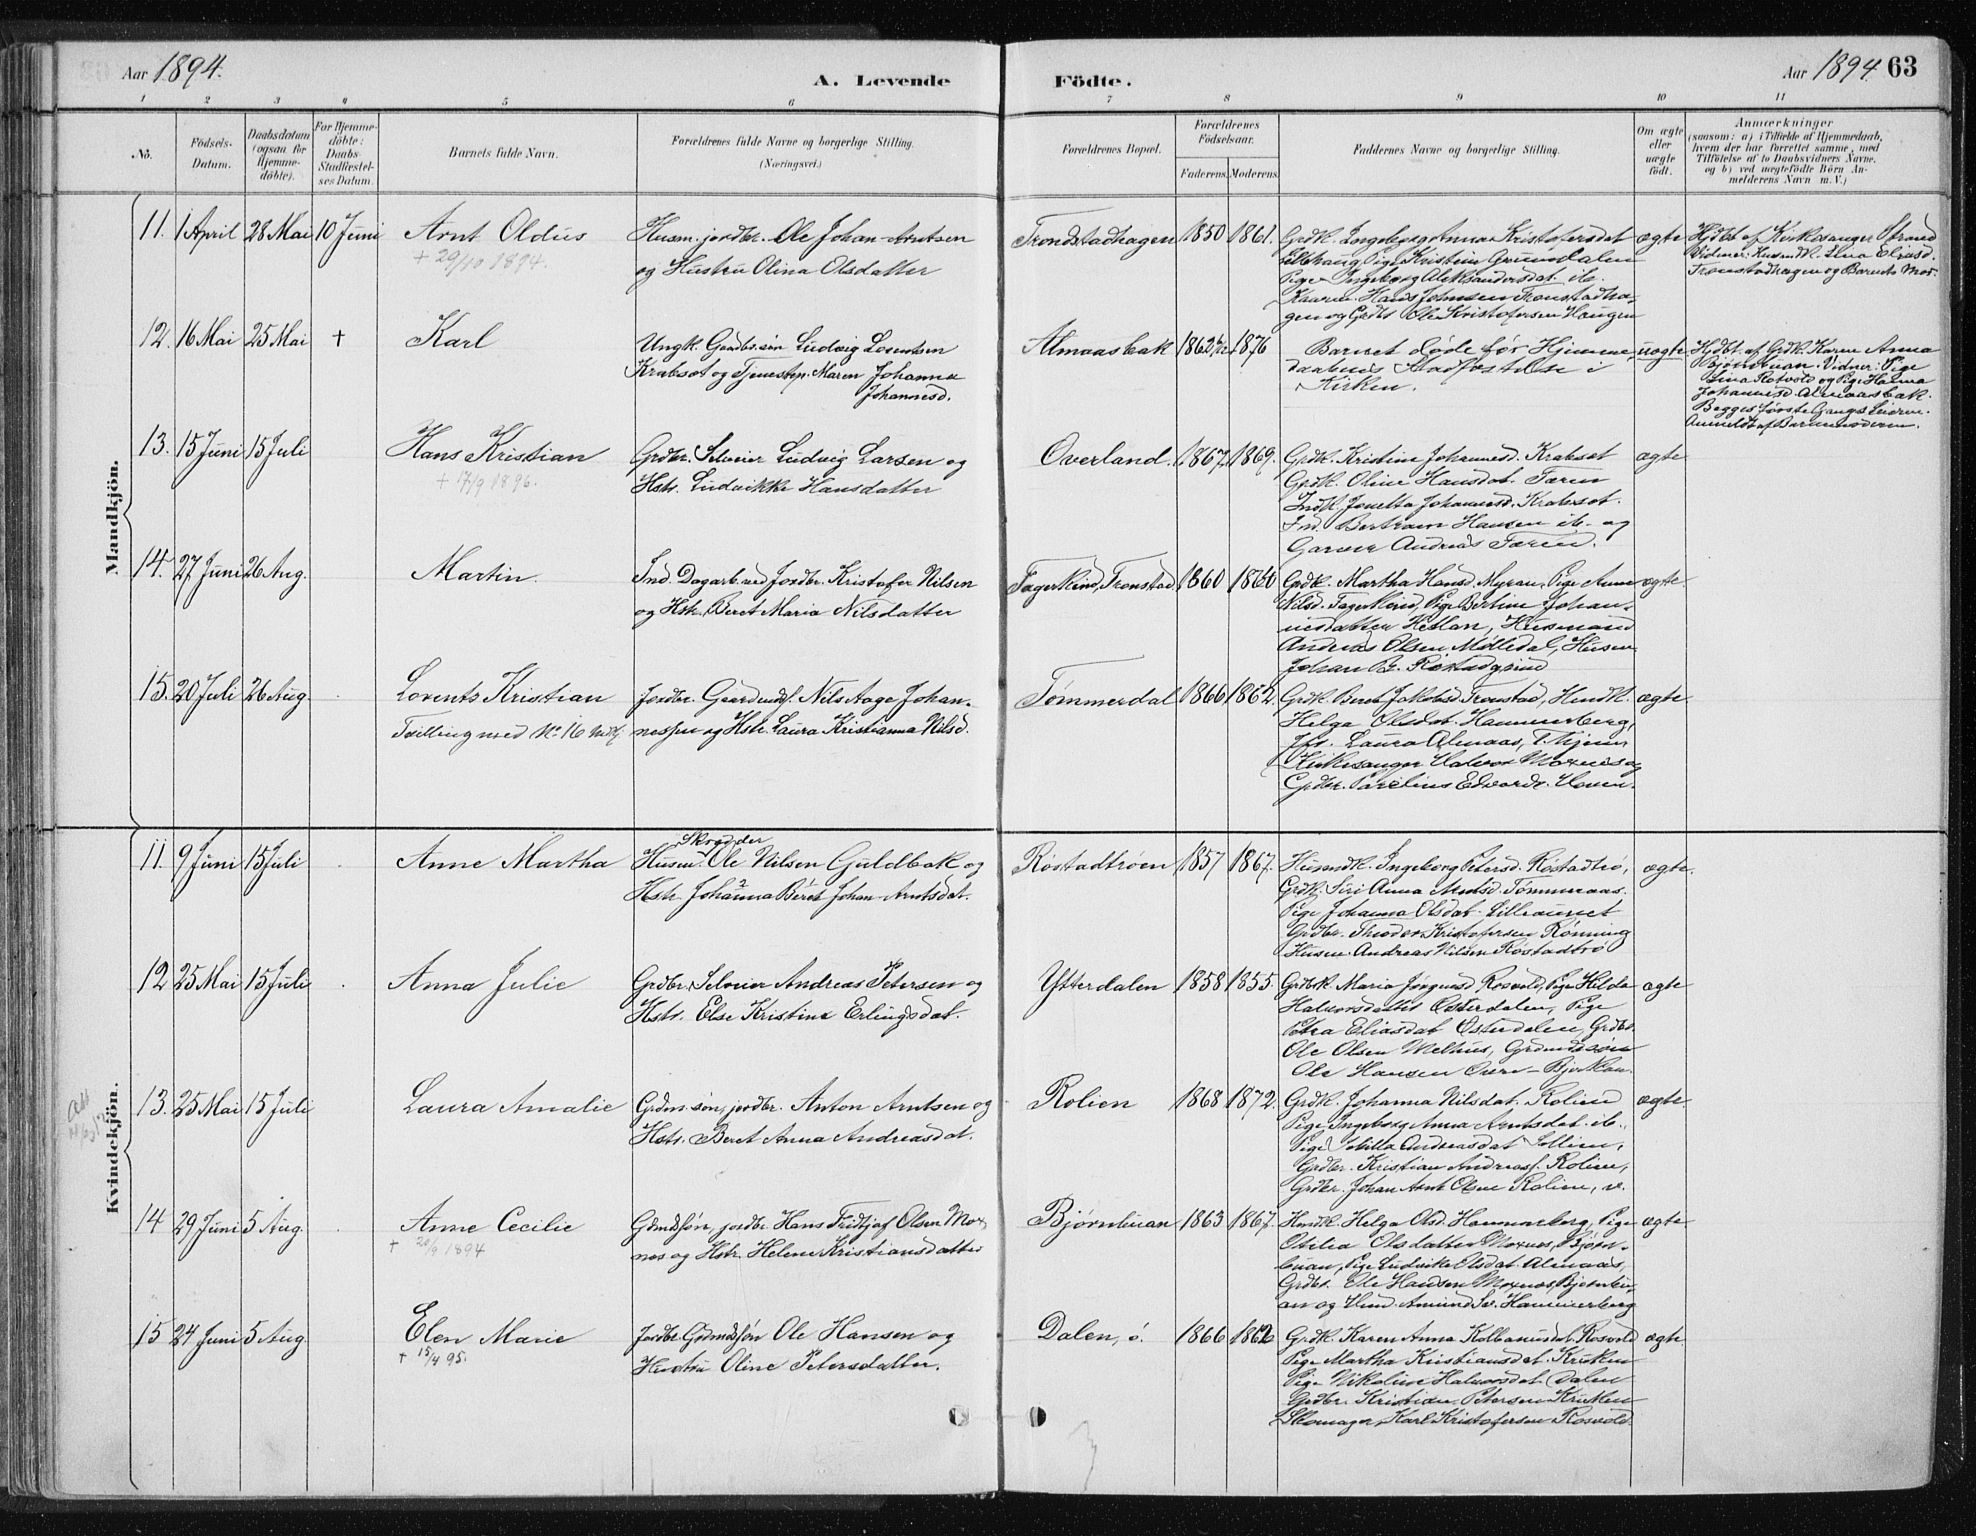 Aar 1894.
A. Levende
Födte.
Aar 1894 63
1 2 3 4 5 6 7 8 9 10 11
No.
Födsels-
Datum.
Daabsdatum
(ogsaa for
Hjemme-
döbte).
For Hjemme-
döbte:
Daabs-
Stadfæstel-
ses Datum.
Barnets fulde Navn.
Forældrenes fulde Navne og borgerlige Stilling.
(Næringsvei.)
Forældrenes Bopæl.
Forældrenes
Födselsaar.
Faderens. Moderens.
Faddernes Navne og borgerlige Stilling.
Om ægte
eller
uægte
födt.
Anmærkninger
(saasom: a) i Tilfælde af Hjemmedaab,
hvem der har forrettet samme, med
Tilföielse af to Daabsvidners Navne,
og b) ved uægtefödte Börn An-
melderens Navn m. V.)
Mandkjön.
11. 1 April 28 Mai 10 Juni
Arnt Oldus
+ 29/10 1894.
Husm. jordbr. Ole Johan Arntsen
og Hustru Olina Olsdatter
Trondstadhagen 1850 1861.
Grdk. Ingeborg Anna Kristofersdat
Lillehaug, Pige Kristin Grundalen
Pige Ingeborg Aleksandersdat ib.
Hans Johnsen Tronstadha-
gen og Grdbr Ole Kristofersen Haugen
ægte
Hjdbt af Kirkesanger Strand
Vidner: Husmdk. Lina Eliasd.
Tronstadhagen og Barnets Mor.
12. 16 Mai 25 Mai +
Karl
Ungk. Gaardbr.søn Ludvig Lorentsen
Krabsøt og Tjenestep. Maren Johanna
Johannesd.
Almaasbak 1862 1876
Barnet døde før Hjemme-
daabens Stadfæstelse i
Kirken.
uægte
Hjdbt. af Grdk. Karen Anna
Bjørnbuan. Vidner: Pige
Lina Rotvold og Pige Hanna
Johannesd. Almaasbak.
Begges første Gangs Leierm.
Anmeldt af Barnemoderen.
13. 15 Juni 15 Juli
Hans Kristian
+ 17/9 1896.
Grdbr. Selveier Ludvig Larsen og
Hstr. Ludvikke Hansdatter
Overland. 1867. 1869.
Grdk. Kristine Johannesd. Krabsøt
Grdk. Oline Hansdat. Faren
Indk. Jonetta Johannesd. Krabsøt.
Ind. Bertram Hansen ib. og
Garver Andreas Faren.
ægte
14. 27 Juni 26 Aug.
Martin.
Ind. Dagarb. ved Jordbr. Kristofer Nilsen
og Hstr. Beret Maria Nilsdatter
Fagerlind, Tronstad 1860
Grdk. Martha Hansd. Myran, Pige Anne
Nilsd. Fagerlind, Pige Bertine Johan-
nesdatter Hetlan, Husmand
Andreas Olsen Mølledal, Husm
Johan Røstadgrind
ægte.
15. 20 Juli 26 Aug.
Lorents Kristian
Tvilling med No. 16
Jordbr. Gaardmdsf. Nils Aage Johan-
nessen og Hstr. Laura Kristianna Nilsd.
Tømmerdal 1866 1862.
Grdk. Beret Jakobsd. Tronstad, Husdk.
Helga Olsdat. Hammerberg,
Laura Almaas,
Kirkesanger Halvor Moxnes og
Grdbr. Parelius Edvards. Hoven.
ægte.
Kvindekjön.
11. 9 Juni 15 Juli
Anne Martha
Skrædder
Husm. Ole Nilsen Guldbak og
Hstr. Johanna Beret Johan-Arntsdat.
Røstadtrøen 1857 1867.
Husmdk. Ingeborg Petersd. Røstadtrø,
Grdk. Siri Anna Arntsd. Tømmeraas.
Pige Johanna Olsdat.
Grdbr. Theodor Kristofersen Rønning
Husm. Andreas Nilsen Røstadtrø
ægte.
12 25 Mai 15 Juli
Anna Julie
Grdbr. Selveier Andreas Petersen og
Hstr. Else Kristine Erlingsdat.
Ytterdalen 1858 1855.
Grdbrk. Maria Jørgensd Rosvold, Pige Hilda
Halvorsdatter Østerdalen, Pige
Petra Eliasdat Østerdalen, Grdbr.
Ole Olsen Melhus, Grdmdssøn
Ole Hansen
ægte
13. 25 Mai 15 Juli
Laura Amalie
Grdm.søn, jordbr. Anton Arntsen og
Hstr. Beret Anna Andreasdat.
Rolien 1868 1872.
Grdk. Johanna Nilsdat. Rolien
Pige Ingeborg Anna Arntsdat. ib.,
Pige Andreasdat
Grdbr. Kristian Andreass. Rolien,
Grdbr. Johan Arnt Olsen Rolien, v.
ægte.
14 29 Juni 5 Aug.
Anne Cecilie
+ 20/9 1894
Gdmdssøn, jordbr. Hans Fridtjof Olsen Mox-
nes og Hstr. Helene Kristiansdatter
Bjørnbuan 1863 1867.
Helga Olsd. Hammerberg, Pige
Otilia Olsdatter Moxnes, Bjørn-
buan, Pige Ludvike Olsdat. Almaas,
Grdbr. Ole Hansen Moxnes, Bjørnbu-
an og Amund Hammerberg
ægte
15 24 Juni 5 Aug.
Elen Marie
+ 15/4 95.
Jordbr. Gdmdssøn Ole Hansen og
Hustru Oline Petersdatter.
Dalen, ø. 1866 1862
Grdk. Karen Anna Kolbanusdat. Rosvold
Pige Martha Kristiansdat. Kruken
Pige Nikoline Halvorsdat. Dalen
Grdbr. Kristian Petersen Krukken
Skomager, Karl Kristofersen Rosvold.
ægte